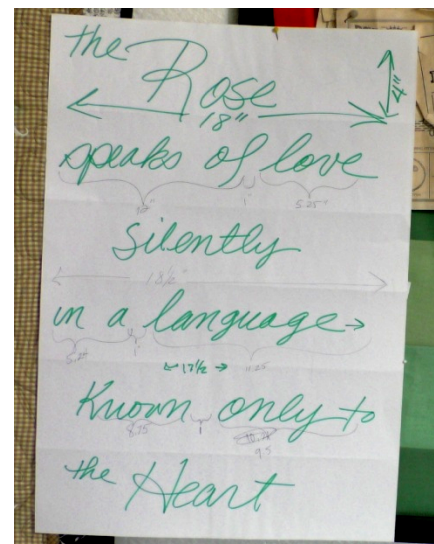 the Rose
4"
18"
speaks of love
1" 5.25"
Silently
18½"
in a language
1" 11.25
17½
Known only to
8.25 1
9.5
the Heart